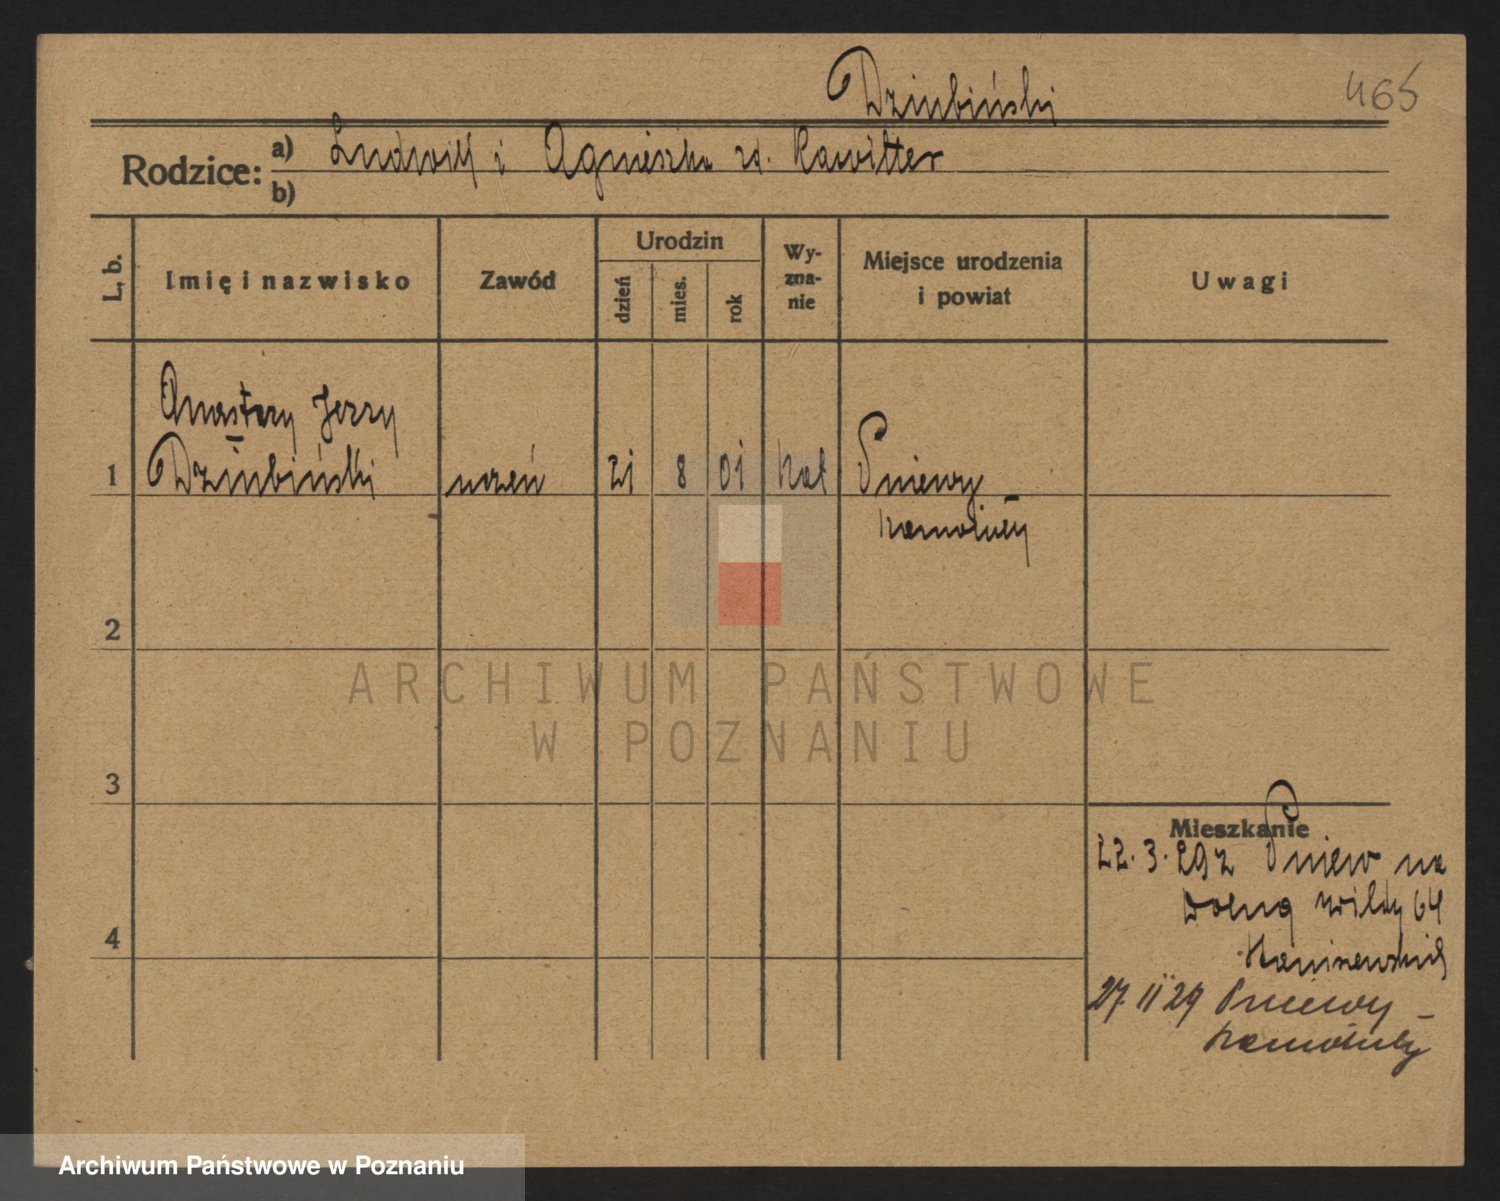 Dziubiński
465
Rodzice: a) Ludwik i Agnieszka zd. Kawitter
b)
L. b.
Imię i nazwisko
Zawód
Urodzin
dzień
mies.
rok
Wy-
zna-
nie
Miejsce urodzenia
i powiat
Uwagi
Anastazy Jerzy
1 Dziubiński uczeń 21 8 01 kat Pniewy
Szamotuły
2
3
4
Mieszkanie
22. 3. 29 z Pniew na
Dolną Wildy 64
27. 11 29 Pniewy -
Szamotuły
ARCHIWUM PAŃSTWOWE
W POZNANIU
Archiwum Państwowe w Poznaniu